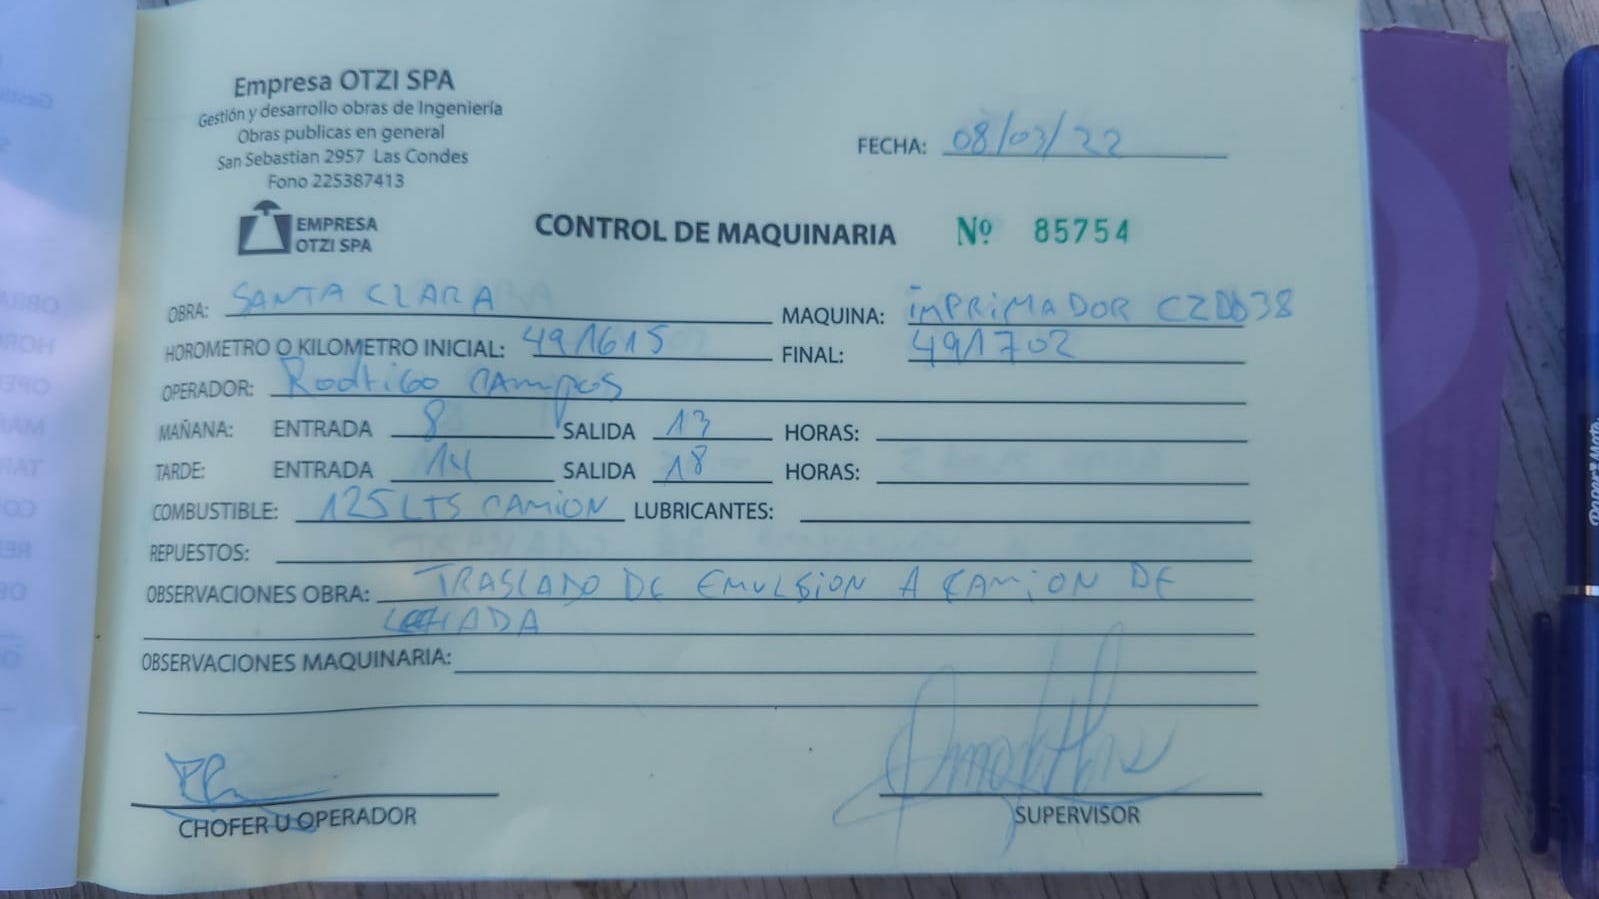 Empresa OTZI SPA
Gestión y desarrollo obras de Ingeniería
Obras publicas en general
San Sebastian 2957 Las Condes
Fono 225387413
EMPRESA
OTZI SPA
FECHA: 08/03/22
CONTROL DE MAQUINARIA Nº 85754
OBRA: SANTA CLARA MAQUINA: IMPRIMADOR
HOROMETRO O KILOMETRO INICIAL: 491615 FINAL: 491702
OPERADOR: Rodrigo CAMPOS
MAÑANA: ENTRADA 8 SALIDA 13 HORAS:
TARDE: ENTRADA 14 SALIDA 18 HORAS:
COMBUSTIBLE: 125 LTS CAMION LUBRICANTES:
REPUESTOS:
OBSERVACIONES OBRA: TRASLADO DE EMULSION A CAMION DE
LECHADA
OBSERVACIONES MAQUINARIA:
CHOFER U OPERADOR
SUPERVISOR